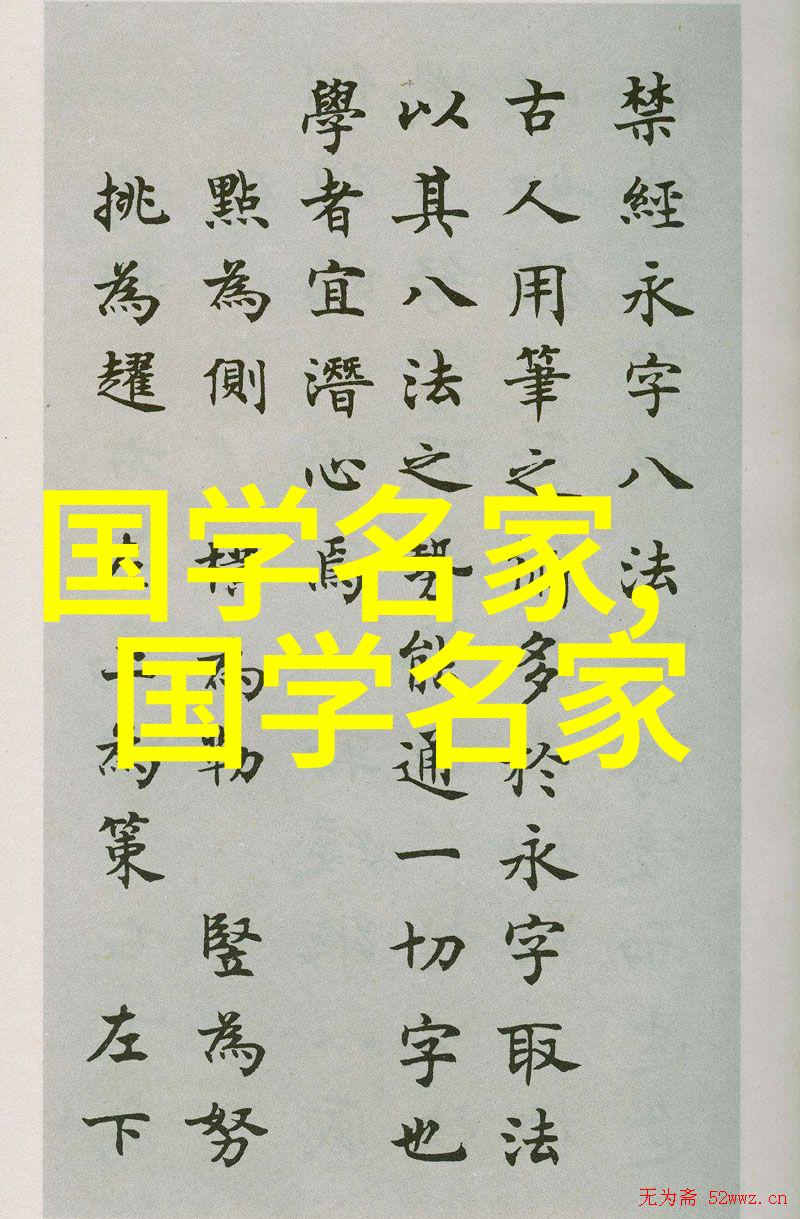 禁經永字八法
古人用筆之多於永字取法
以其八法之勢能通一切字也
學者宜潛心焉
點為側 橫為勒 豎為努
挑為趯 左上為策 左下
国学名家,
国学名家
无为斋 52wwz.cn